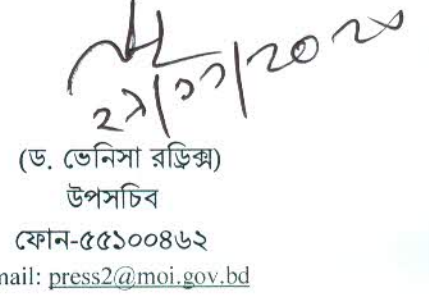 (ড. ভেনিসা রড্রিক্স)
উপসচিব
ফোন-৫৫১০০৪৬২
mail: press2@moi.gov.bd